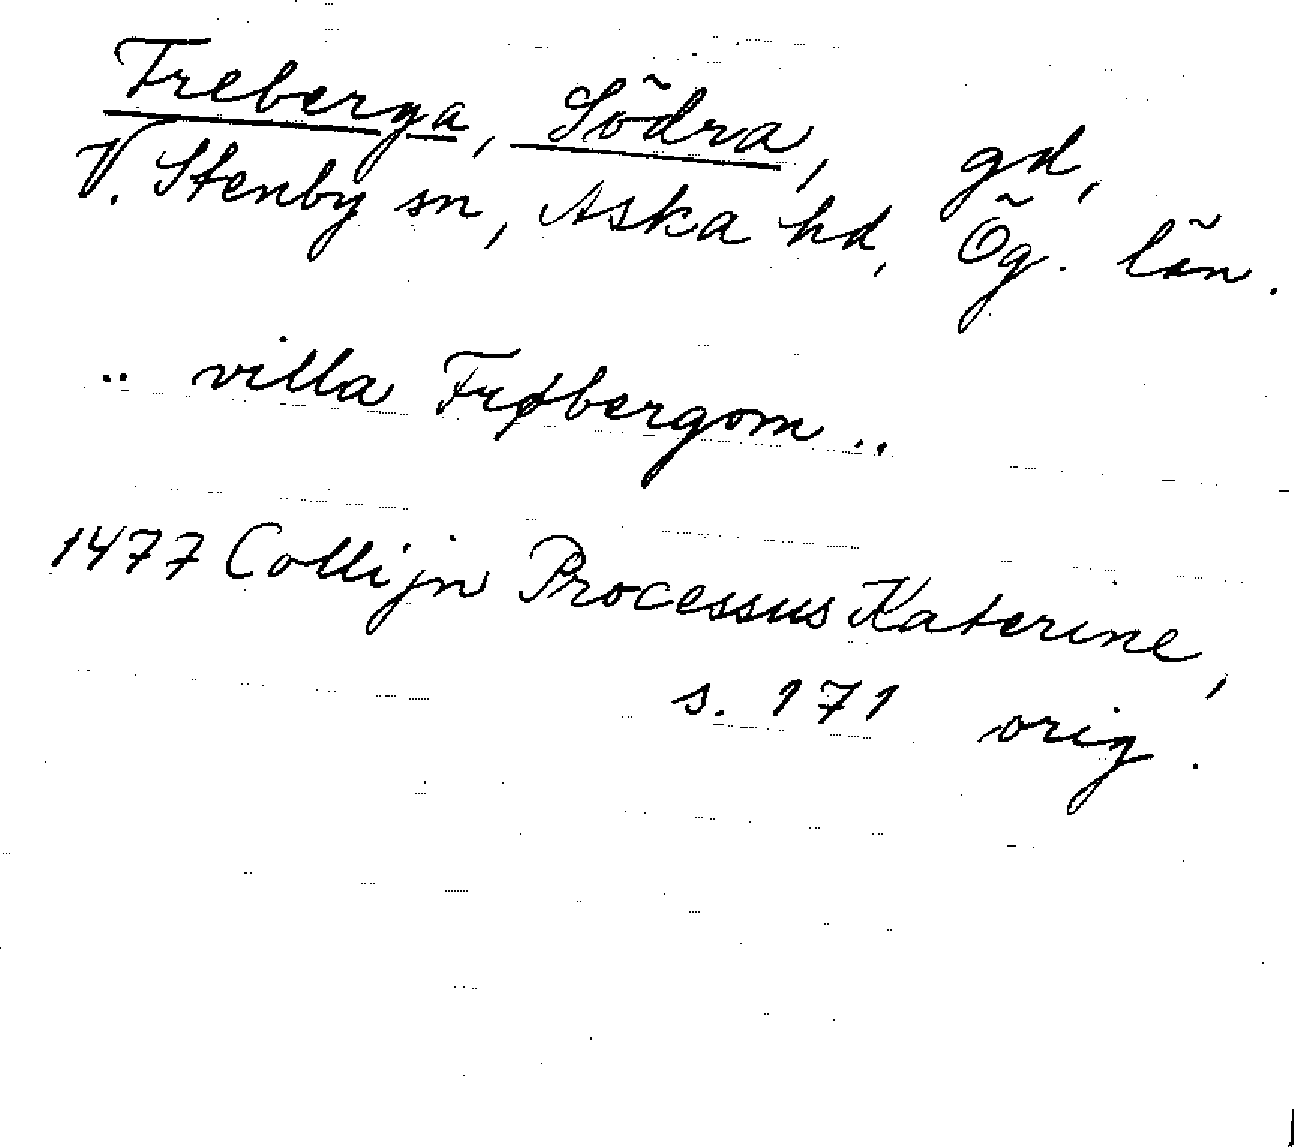 Freberga, Södra, gd,
V. Stenby sn, Aska hd, Ög. län.
.. villa Frøbergom ..
1477 Collijn Processus Katerine,
s. 171 orig.